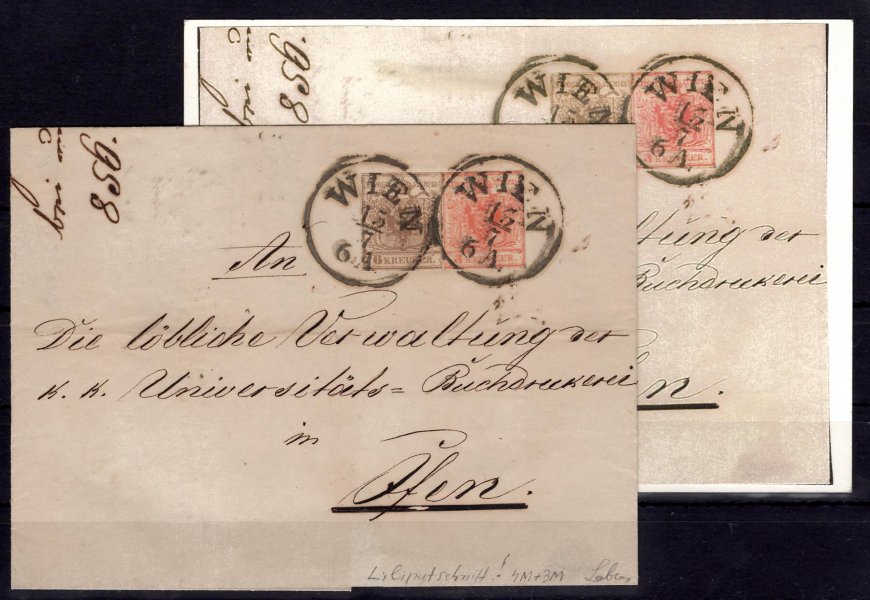 958.
WIEN WIEN
12 12
7 7
6 A. 6 A.
6 KREUZER.
An
Die löbliche Verwaltung der
k. k. Universitäts= Buchdruckerei
in
Ofen.
Liliputschnitt! 4M+3M
958.
WIEN WIEN
12
7
6 A.
ltung der
Buchdruckerei
en.